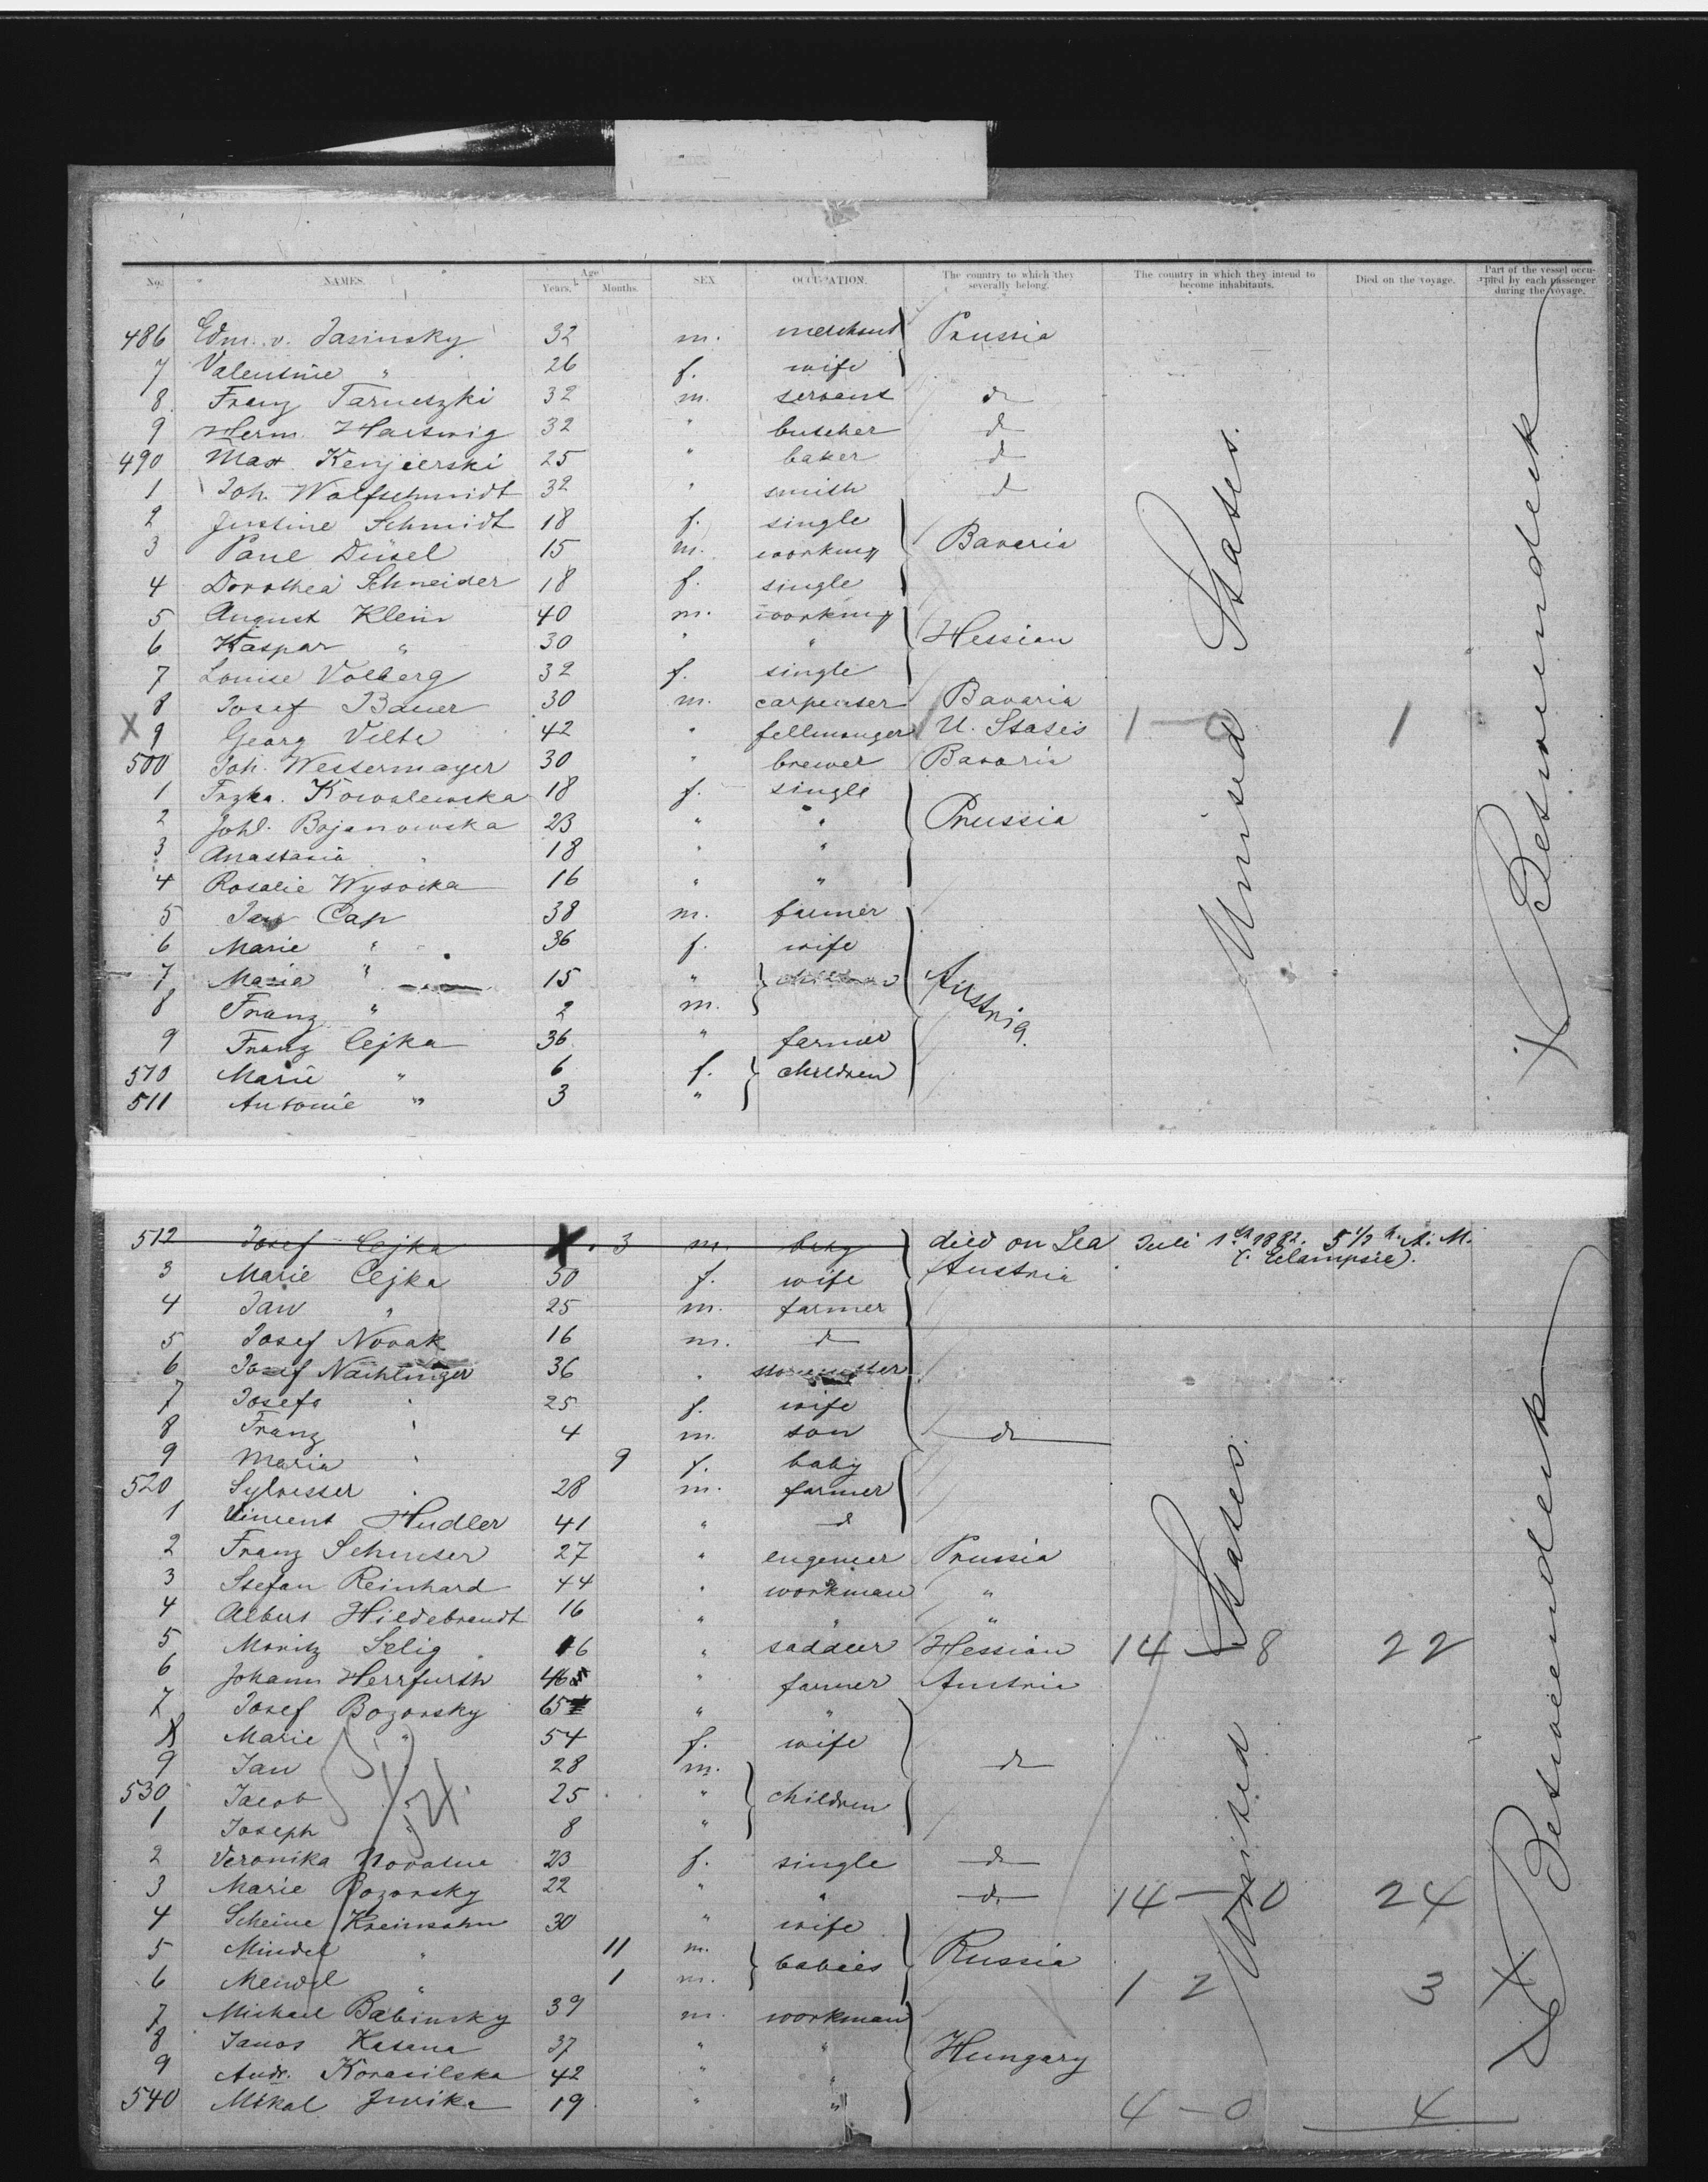 No. NAMES. Age Years. Months. SEX OCCUPATION. The country to which they severally belong. The country in which they intend to become inhabitants. Died on the voyage. Part of the vessel occupied by each passenger during the voyage.
486 Edm. v. Jasinsky 32 m. merchant Prussia
7 Valentine " 26 f. wife
8 Franz Tarneszki 32 m. servant do
9 Herm. Hartwig 32 " butcher do
490 Max Kenjierski 25 " baker do
1 Joh. Wolfschmidt 32 " smith do
2 Justine Schmidt 18 f. single
3 Paul Düsel 15 m. working Bavaria
4 Dorothea Schneider 18 f. single
5 August Klein 40 m. working
6 Kaspar " 30 " " Hessian
7 Louise Volberg 32 f. single
8 Josef Bauer 30 m. carpenter Bavaria
X 9 Georg Velte 42 " fellmonger U. States 1 — 0 1
500 Joh. Westermayer 30 " brewer Bavaria
1 Frzka. Kowalewska 18 f. single
2 Johl. Bojanowska 23 " " Prussia
3 Anastasia " 18 " "
4 Rosalie Wysocka 16 " "
5 Jan Cap 38 m. farmer
6 Marie " 36 f. wife
7 Maria " 15 " children Austria.
8 Franz " 2 m.
9 Franz Cejka 36 " farmer
510 Marie " 6 f. children
511 Antonie " 3 "
United States.
Betweendeck
512 Josef Cejka 3 m. baby died on Sea Juli 1st 1882. 5 1/2 h. A. M.
(Eclampsie).
3 Marie Cejka 50 f. wife Austria
4 Jan " 25 m. farmer
5 Josef Novak 16 m. do
6 Josef Nachlinger 36 "
7 Josefa " 25 f. wife
8 Franz " 4 m. son do
9 Maria " 9 f. baby
520 Sylvester " 28 m. farmer
1 Vincent Hudler 41 " do
2 Franz Schuster 27 " engeneer Prussia
3 Stefan Reinhard 44 " workman "
4 Albert Hildebrandt 16 " " "
5 Moritz Selig 16 " saddler Hessian 14 — 8 22
6 Johann Herrfurth 46 " farmer Austria
7 Josef Bozovsky 65 " "
8 Marie " 54 f. wife
9 Jan " 28 m. do
530 Jacob " 25 " children
1 Joseph " 8 "
2 Veronika 23 f. single do
3 Marie Bozovsky 22 " " do 14 — 10 24
4 Scheine Kreinsohn 30 " wife
5 Mindel " 11 m. babies Russia
6 Mendel " 1 m. 1 2 3
7 Michael Babinsky 39 m. workman
8 Janos Katana 37 " " Hungary
9 Andr. Koracilska 42 " "
540 Mikal Jurika 19 " " 4 — 0 4
United States.
Betweendeck